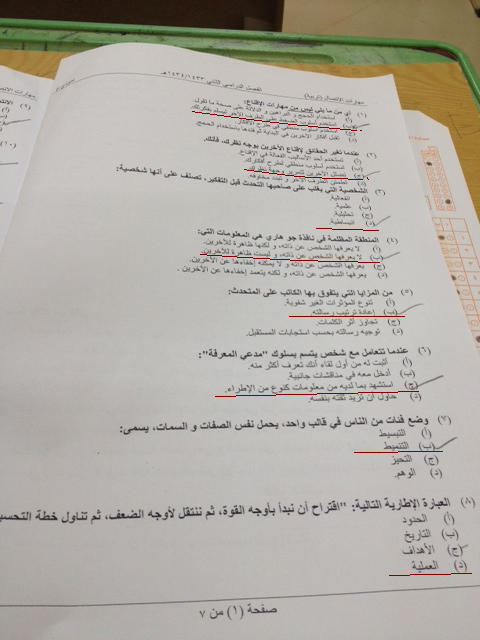 مهارات الاتصال (تربية) الفصل الدراسي الثاني ١٤٣٤/١٤٣٣هـ
(١) أي من ما يلي ليس من مهارات الإقناع:
أ) استخدام الحجج والبراهين والدلالة على صحة ما تقول.
ب) استخدام أسلوب الضغط على الطرف الآخر ليسلم بفكرتك.
ج) استخدام أسلوب منطقي في طرح الأفكار.
د) تقبل أفكار الآخرين في البداية ثم فندها باستخدام الحجج.
(٢) عندما تغير الحقائق لإقناع الآخرين بوجه نظرك، فأنك.
أ) تستخدم أحد الأساليب الفعالة في الإقناع.
ب) تستخدم أسلوب منطقي لطرح أفكارك.
ج) تضلل الآخرين لتمرير وجهة نظرك.
د) تطمئن الطرف الآخر و تبدد مخاوفه.
(٣) الشخصية التي يغلب على صاحبها التحدث قبل التفكير، تصنف على أنها شخصية:
أ) انفعالية.
ب) علمية.
ج) تحليلية.
د) انبساطية.
(٤) المنطقة المظلمة في نافذة جو هاري هي المعلومات التي:
أ) لا يعرفها الشخص عن ذاته، و لكنها ظاهرة للآخرين.
ب) لا يعرفها الشخص عن ذاته، و ليست ظاهرة للآخرين.
ج) يعرفها الشخص عن ذاته و لا يمكنه إخفاءها عن الآخرين.
د) يعرفها الشخص عن ذاته، و لكنه يتعمد إخفاءها عن الآخرين.
(٥) من المزايا التي يتفوق بها الكاتب على المتحدث:
أ) تنوع المؤثرات الغير شفوية.
ب) إعادة ترتيب رسالته.
ج) تجاوز أثر الكلمات.
د) توجيه رسالته بحسب استجابات المستقبل.
(٦) عندما تتعامل مع شخص يتسم بسلوك "مدعي المعرفة":
أ) أثبت له من أول لقاء أنك تعرف أكثر منه.
ب) أدخل معه في مناقشات جانبية.
ج) استشهد بما لديه من معلومات كنوع من الإطراء.
د) حاول أن تزيد ثقته بنفسه.
(٧) وضع فئات من الناس في قالب واحد، يحمل نفس الصفات و السمات، يسمى:
أ) التبسيط
ب) التنميط
ج) التحيز
د) الوهم.
(٨) العبارة الإطارية التالية: "اقتراح أن نبدأ بأوجه القوة، ثم ننتقل لأوجه الضعف، ثم تناول خطة
أ) الحدود
ب) التاريخ
ج) الأهداف
د) العملية
صفحة (١) من ٧